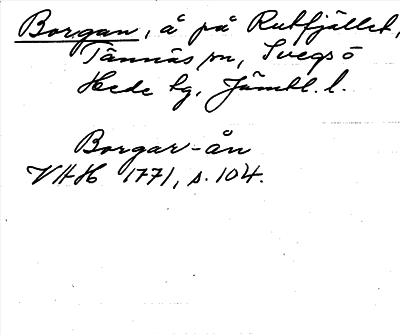 Borgan, å på Rutfjället,
Tännäs sn, Svegs ö
Hede tg, Jämtl. l.
Borgar-ån
VHH 1771, s. 104.